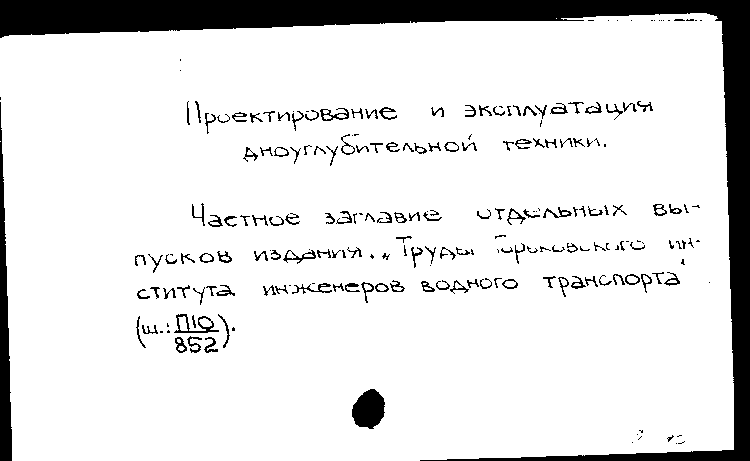 Проектирование и эксплуатация
дноуглубительной техники.
Частное заглавие отдельных вы-
пусков издания. „Труды Горьковского ин-
ститута инженеров водного транспорта"
(ш.: П10
852).